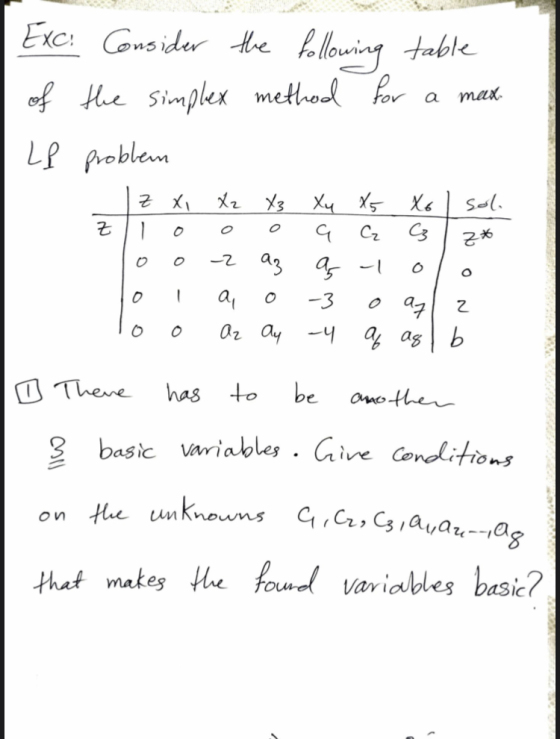 Exc: Consider the following table
of the simplex method for a max.
LP problem
z x₁ x₂ x₃ x₄ x₅ x₆ sol.
z 1 0 0 0 c₁ c₂ c₃ z*
0 0 -2 a₃ a₅ -1 0 0
0 1 a₁ 0 -3 0 a₇ 2
0 0 a₂ a₄ -4 a₆ a₈ b
1 There has to be another
3 basic variables. Give conditions
on the unknowns c₁, c₂, c₃, a₁, a₂, --, a₈
that makes the found variables basic?